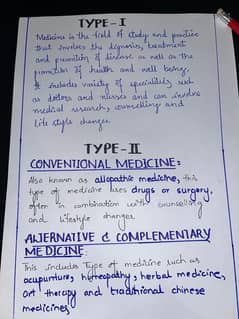 TYPE-I
Medicine is the field of study and practice
that involves the diagnosis, treatment
and prevention of disease as well as the
promotion of health and well being.
It includes variety of specialities such
as doctors and nurses and can involve
medical research, counselling and
life style changes.
TYPE-II
CONVENTIONAL MEDICINE:
Also known as allopathic medicine, this
type of medicine uses drugs or surgery,
often in combination with counselling
and lifestyle changes.
ALTERNATIVE & COMPLEMENTARY
MEDICINE:
This includes Type of medicine such as
acupunture, homeopathy, herbal medicine,
art therapy and traditional chinese
medicines